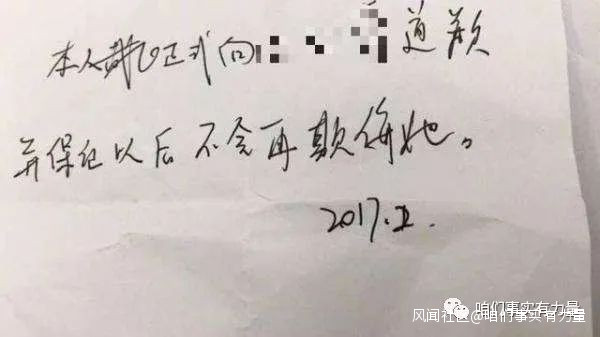 本人戴正式向 道歉
并保证以后不会再欺侮她。
2017.2.
咱们事实有力量
风闻社区@咱们事实有力量